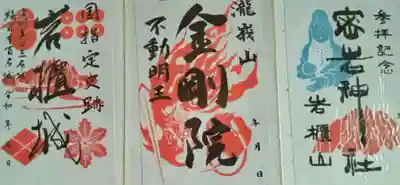 参拝記念
密岩神社
岩櫃山
瀧峩山
金剛院
不動明王
年 月 日
国指定史跡
岩櫃城
令和 年 月 日